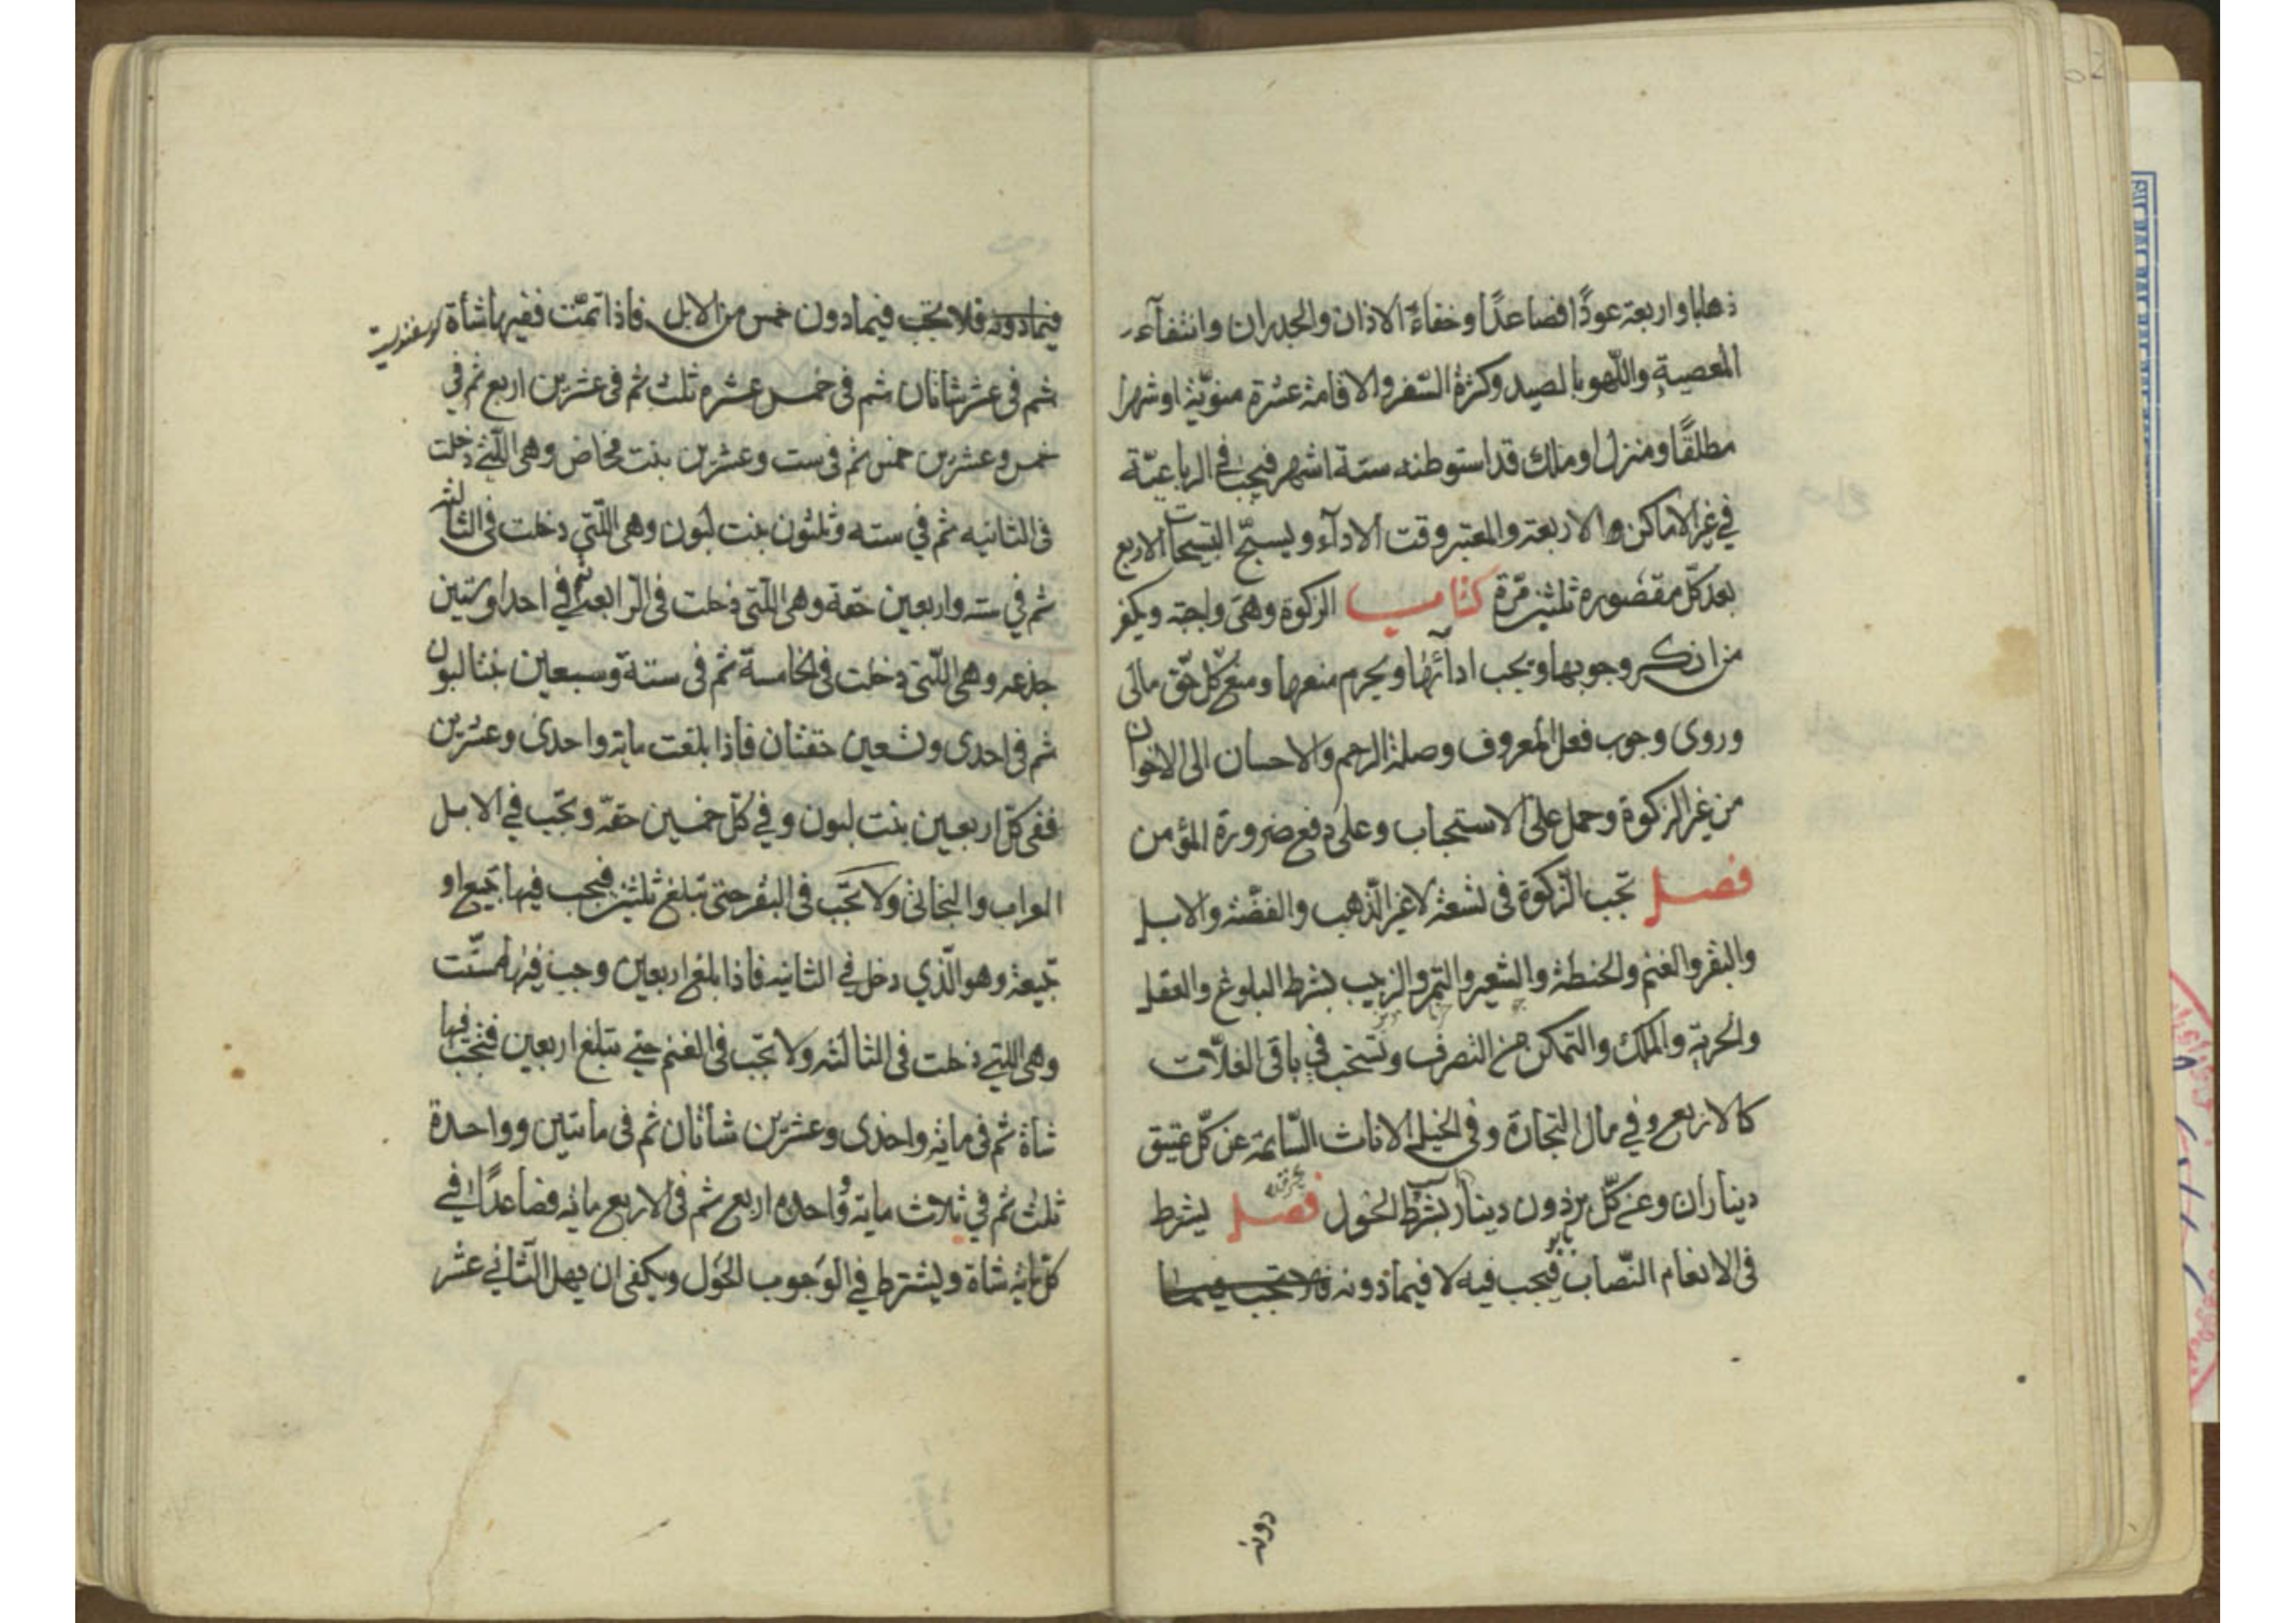 ذهابا واربعة عودًا فصاعدًا وخفاءَ الاذان والجدران وانتفآء
المعصية واللّهو بالصيد وكثرة السّفر والاقامة عشرة منويّة او شهرا
مطلقًا ومنزل او ملك قد استوطنه ستة اشهر فيجب في الرباعيّة
في غير الاماكن الاربعة والمعتبر وقت الادآء ويسبّح التسبيحات الاربع
بعد كلّ مقصوره ثلثين مرّة كتاب الزكوة وهى واجبة ويكفر
من انكر وجوبها ويجب ادائها ويحرم منعها ومنع كل حقّ مالى
وروى وجوب فعل المعروف وصلة الرحم والاحسان الى الاخوان
من غير الزكوة وحمل على الاستحباب وعلى دفع ضرورة المؤمن
فصل تجب الزّكوة فى تسعة لا غير الذّهب والفضّة والابل
والبقر والغنم والحنطة والشعير والتمر والزبيب بشرط البلوغ والعقل
والحرية والملك والتمكن من التصرف وتستحب في باقى الغلّات
كالارز مع وفي مال التجارة وفى الخيل الاناث السّايمة عن كلّ عتيق
ديناران وعن كلّ برذون دينار بشرط الحول فصل يشرط
فى الانعام النّصاب فيجب فيه لا فيما دونه فلا تجب فيما
دونه
فيما دونه فلا تجب فيما دون خمس من الابل فاذا تمّت ففيها شأة
ثم فى عشر شاتان ثم فى خمس عشره ثلث ثم فى عشرين اربع ثم في
خمس وعشرين خمس ثم فى ست وعشرين بنت مخاض وهى اللّتى دخلت
فى الثانيه ثم في سته وثلثون بنت لبون وهى اللّتى دخلت فى الثالثه
ثم في سته واربعين حقة وهى اللّتى دخلت فى الرّابعة ثم في احد وستين
جذعه وهى اللّتى دخلت فى الخامسة ثم فى ستة وسبعين بنتا لبون
ثم فى احدى وتسعين حقتان فاذا بلغت مايه واحدى وعشرين
ففى كلّ اربعين بنت لبون وفي كلّ خمسين حقّه وتجب في الابل
العراب والبخاتى ولا تجب فى البقر حتى تبلغ ثلثين فيجب فيها تبيع او
تبيعة وهو الّذي دخل في الثانيه فاذا بلغ اربعين وجب فيها مسنّت
وهى اللتي دخلت فى الثالثه ولا تجب فى الغنم حتى تبلغ اربعين فتجب فيها
شاة ثم فى مايه واحدى وعشرين شأتان ثم فى مأتين وواحدة
ثلث ثم في ثلاث مايه وواحده اربع ثم فى الاربع مايه فصاعدًا في
كلّ مايه شاة ويشترط في الوجوب الحول ويكفى ان يهل الثانى عشر